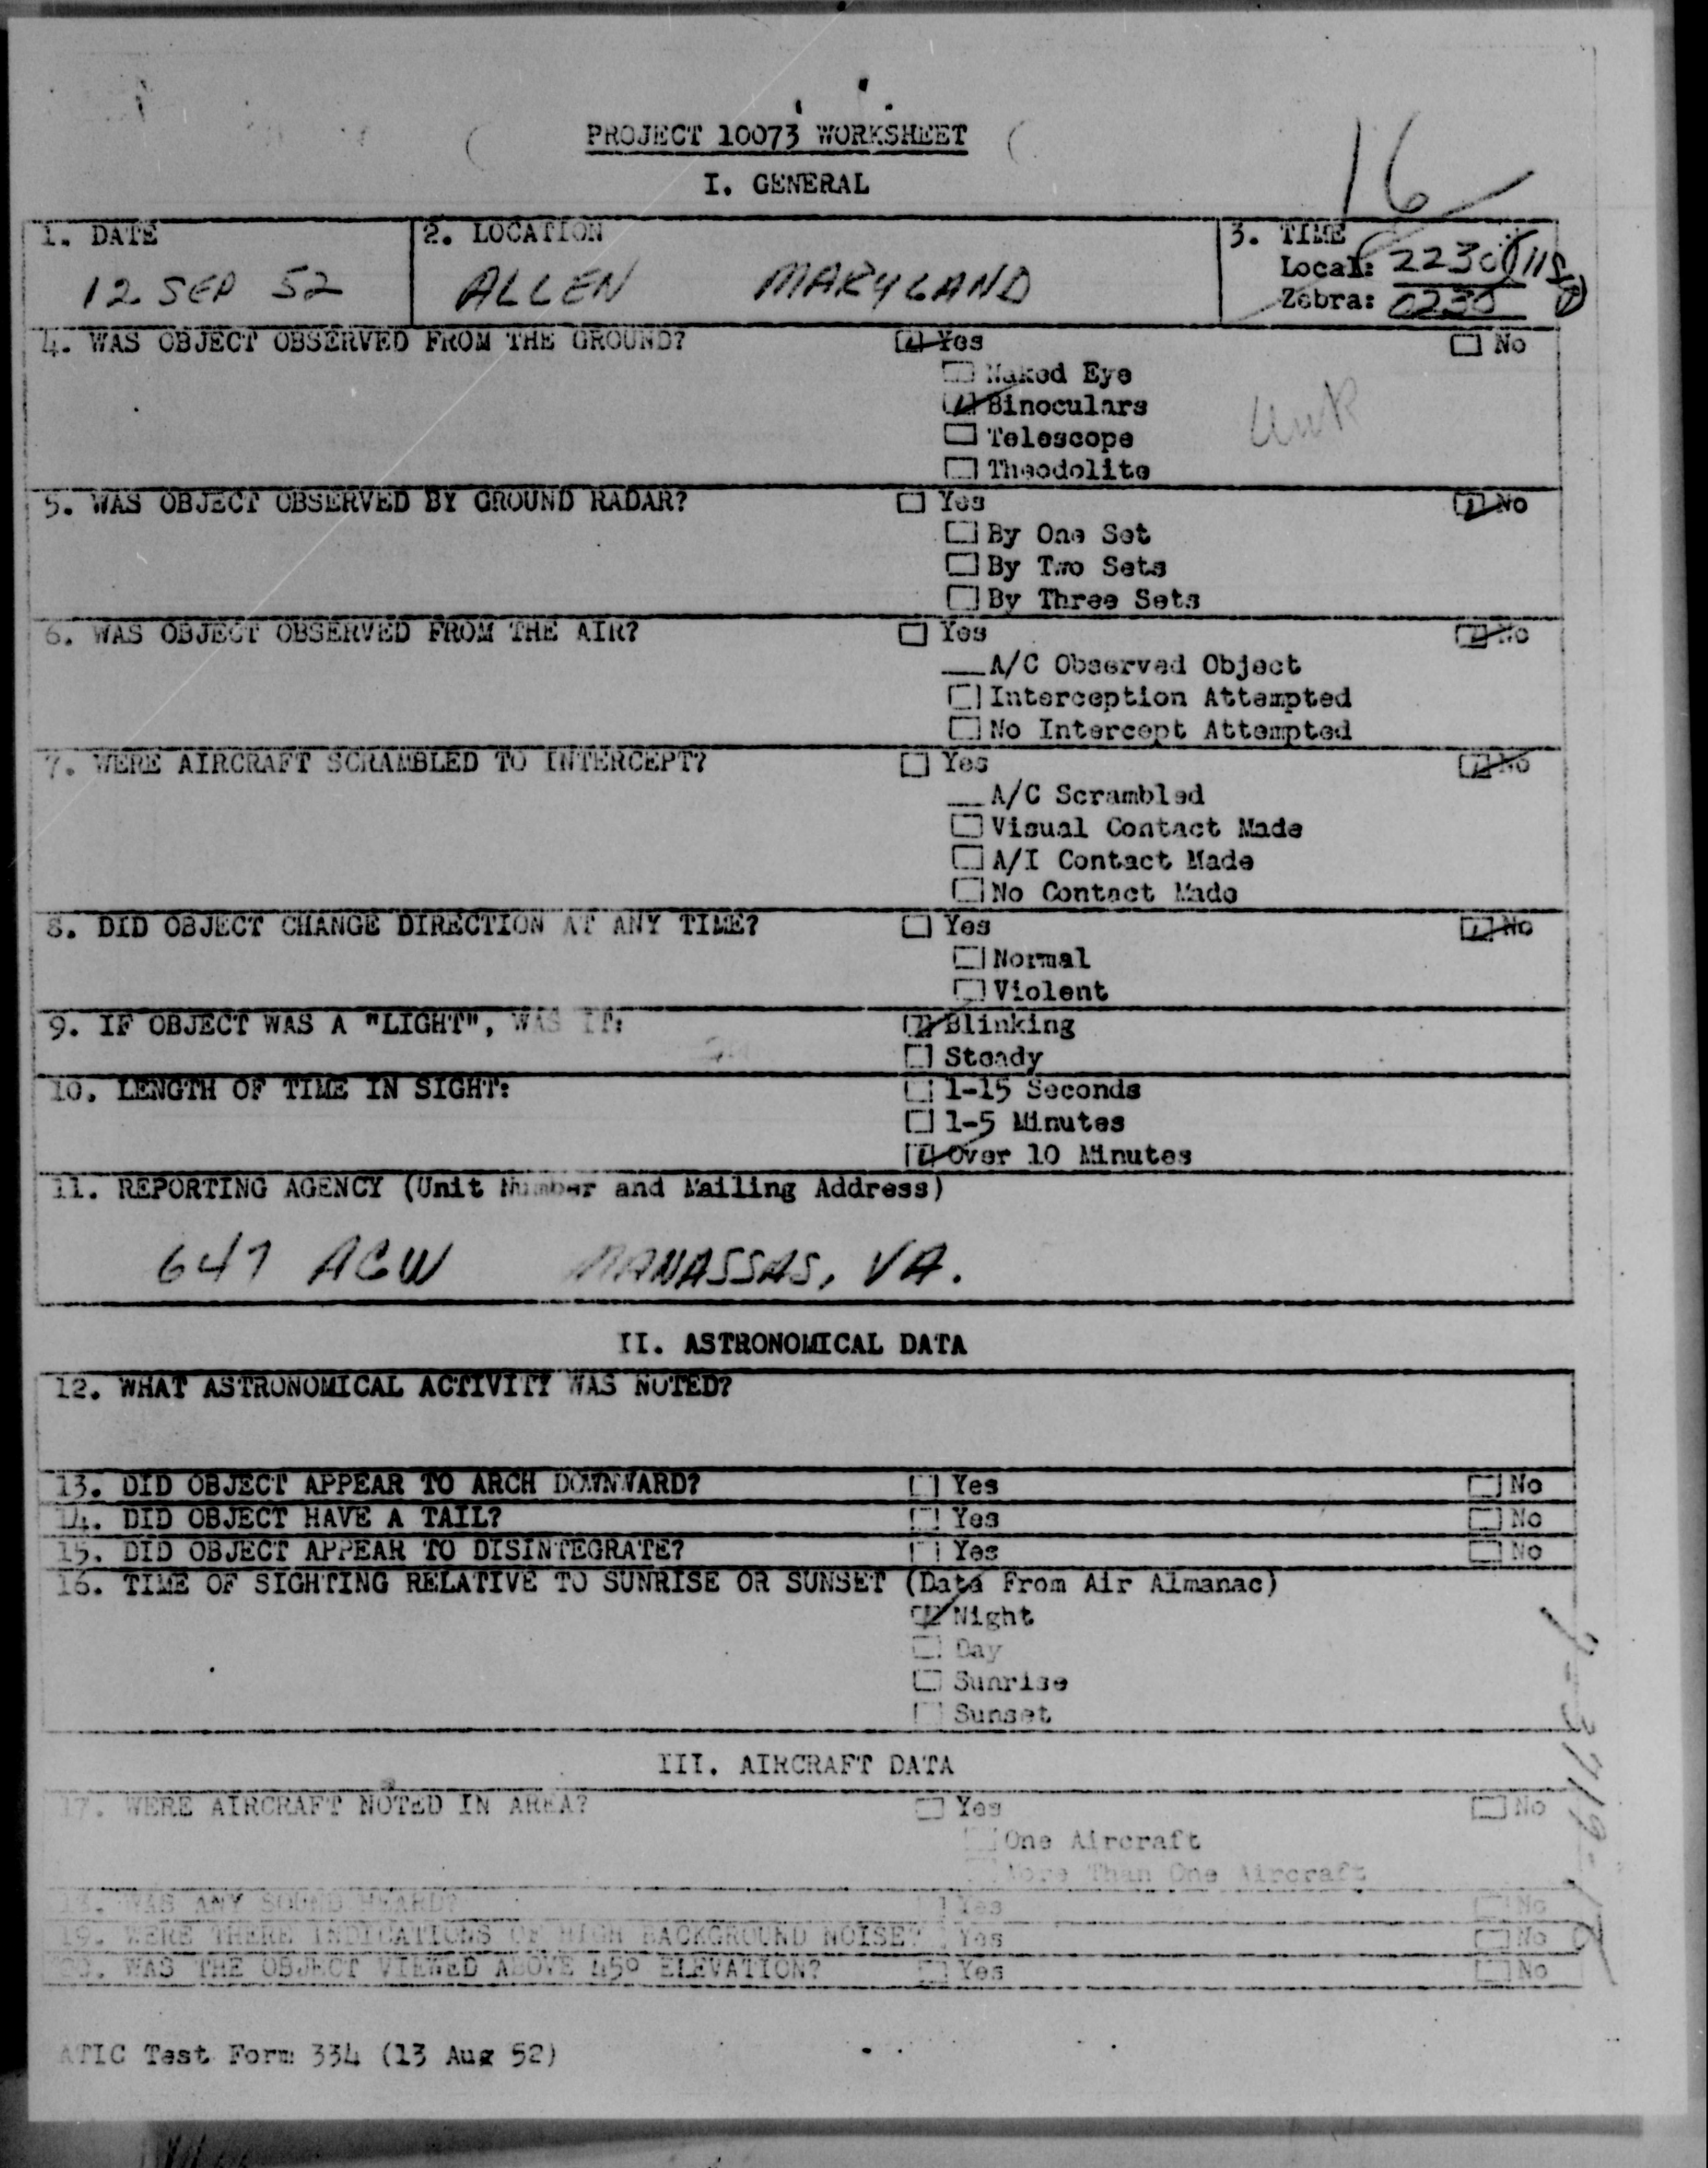 PROJECT 10073 WORKSHEET
16
I. GENERAL
1. DATE
12 SEP 52
2. LOCATION
ALLEN MARYLAND
3. TIME
Local: 2230
Zebra: 0230
4. WAS OBJECT OBSERVED FROM THE GROUND? Yes No
Naked Eye
Binoculars
UNK
Telescope
Theodolite
5. WAS OBJECT OBSERVED BY GROUND RADAR? Yes No
By One Set
By Two Sets
By Three Sets
6. WAS OBJECT OBSERVED FROM THE AIR? Yes No
A/C Observed Object
Interception Attempted
No Intercept Attempted
7. WERE AIRCRAFT SCRAMBLED TO INTERCEPT? Yes No
A/C Scrambled
Visual Contact Made
A/I Contact Made
No Contact Made
8. DID OBJECT CHANGE DIRECTION AT ANY TIME? Yes No
Normal
Violent
9. IF OBJECT WAS A "LIGHT", WAS IT: Blinking
Steady
10. LENGTH OF TIME IN SIGHT: 1-15 Seconds
1-5 Minutes
Over 10 Minutes
11. REPORTING AGENCY (Unit Number and Mailing Address)
647 ACW MANASSAS, VA.
II. ASTRONOMICAL DATA
12. WHAT ASTRONOMICAL ACTIVITY WAS NOTED?
13. DID OBJECT APPEAR TO ARCH DOWNWARD? Yes No
14. DID OBJECT HAVE A TAIL? Yes No
15. DID OBJECT APPEAR TO DISINTEGRATE? Yes No
16. TIME OF SIGHTING RELATIVE TO SUNRISE OR SUNSET (Data From Air Almanac)
Night
Day
Sunrise
Sunset
III. AIRCRAFT DATA
17. WERE AIRCRAFT NOTED IN AREA? Yes No
One Aircraft
More Than One Aircraft
18. WAS ANY SOUND HEARD? Yes No
19. WERE THERE INDICATIONS OF HIGH BACKGROUND NOISE? Yes No
20. WAS THE OBJECT VIEWED ABOVE 45° ELEVATION? Yes No
ATIC Test Form 334 (13 Aug 52)